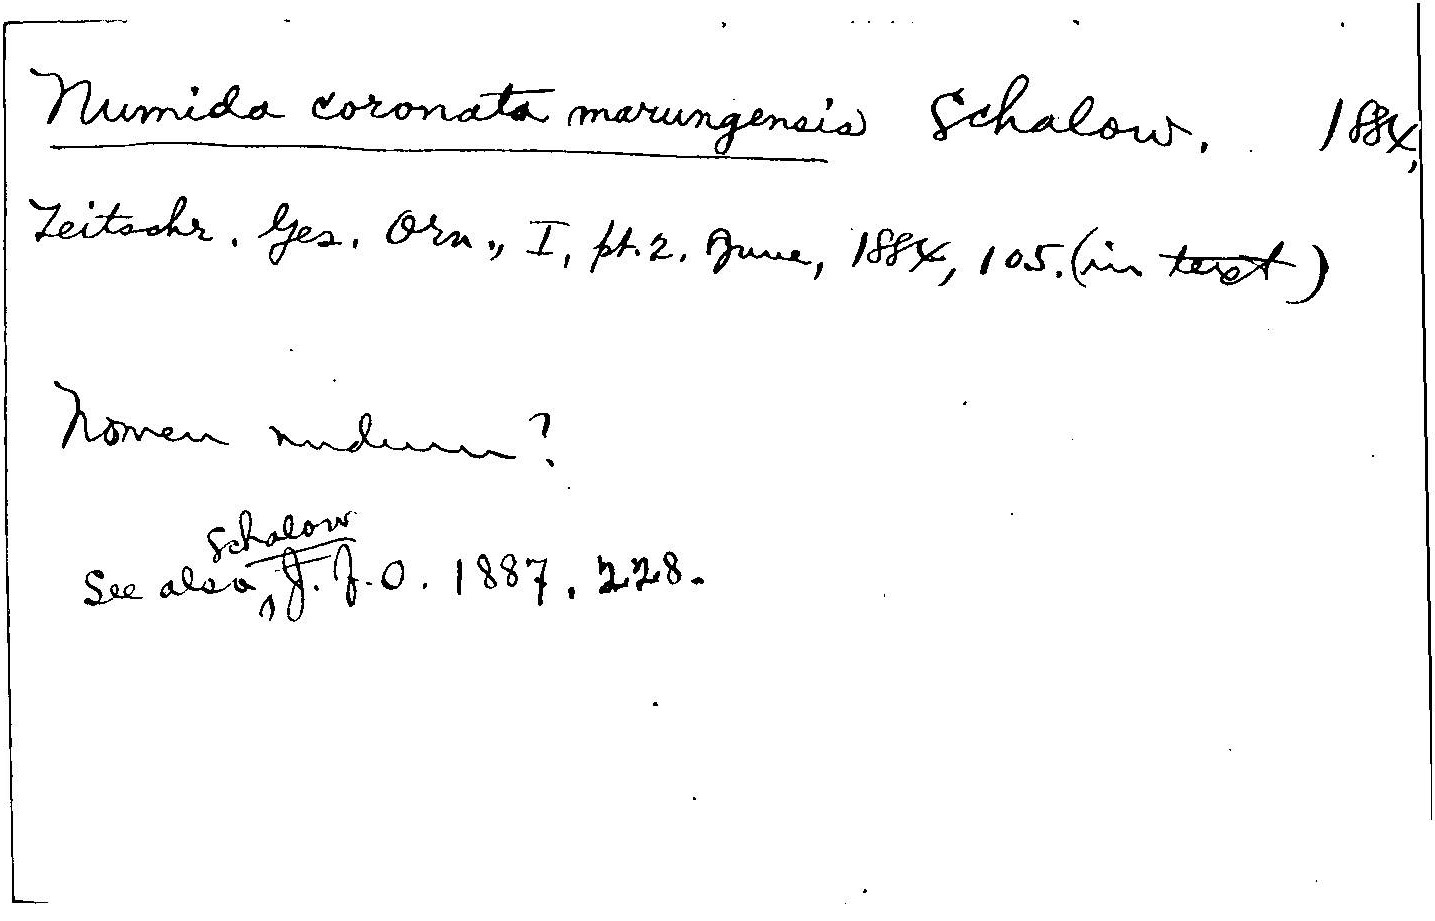 Numida coronata marungensis Schalow. 1884,
Zeitschr. Ges. Orn., I, pt. 2. June, 1884, 105. (in text)
Nomen nudum?
Schalow
See also, J. f. O. 1887. 228.